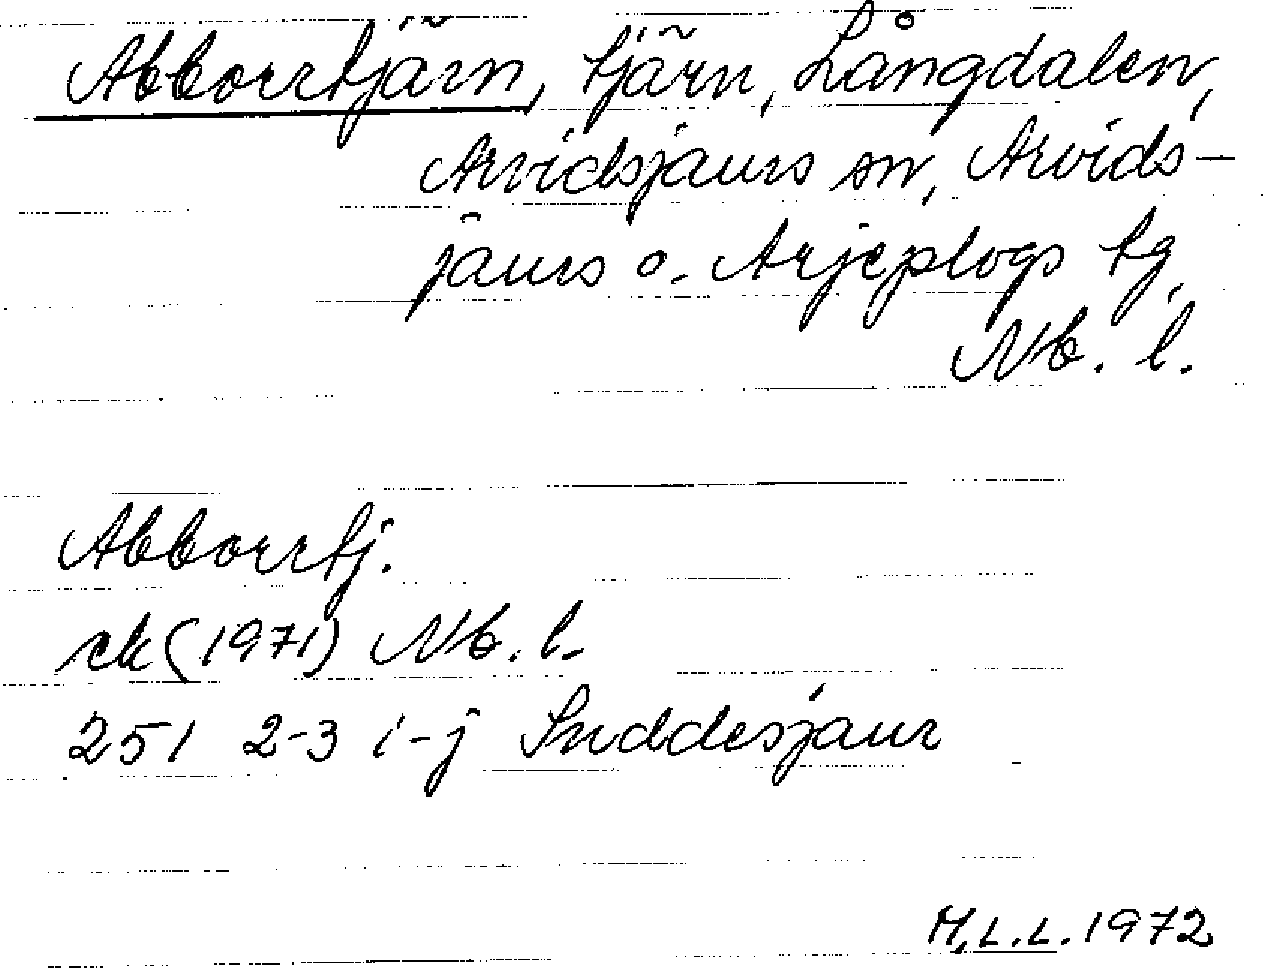 Abborrtjärn, tjärn, Långdalen,
Arvidsjaurs sn, Arvids-
jaurs o. Arjeplogs tg,
Nb. l.
Abborrtj.
rek (1971) Nb. l.
251 2-3 i-j Suddesjaur
M.L.L. 1972